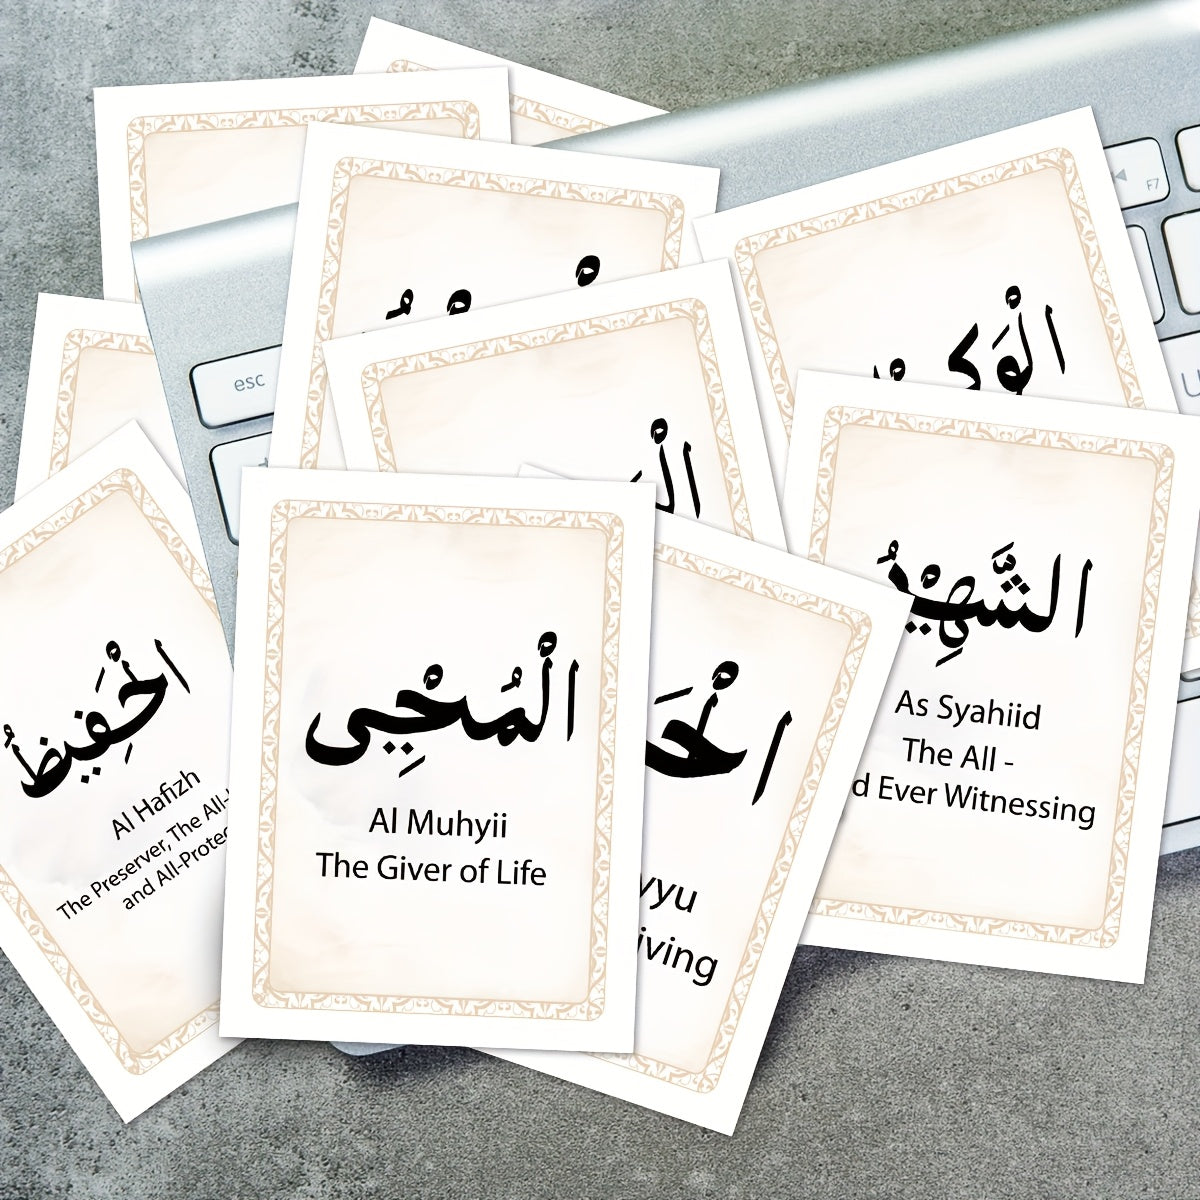 esc
F7
الْحَفِيظُ
Al Hafizh
The Preserver, The All-
and All-Protec
الْمُحْيِى
Al Muhyii
The Giver of Life
yyu
iving
الشَّهِيدُ
As Syahiid
The All -
d Ever Witnessing